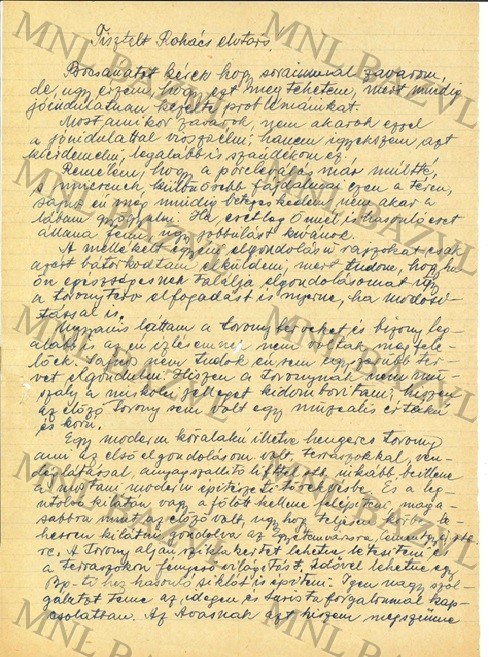 Tisztelt Rohács elvtárs.
Bocsánatot kérek hogy soraimmal zavarom,
de, úgy érzem, hogy ezt megtehetem, mert mindig
jóindulatuan kezelte problémáinkat.
Most amikor zavarok, nem akarok ezzel
a jóindulattal visszaélni, hanem igyekszem azt
kiérdemelni, legalábbis szándékom ez.
Remélem, hogy a porckopás már múlté,
s nincsenek különösebb fájdalmai ezen a téren,
sajnos én még mindig betegeskedem, nem akar a
lábam gyógyulni. Ha esetleg Önnél is hasonló eset
állana fenn, úgy jobbulást kívánok.
A mellékelt egyéni elgondolású rajzokat csak
azért bátorkodtam elküldeni, mert tudom, hogy ha
ön egészségesnek találja elgondolásomat úgy
a toronyterv elfogadást is nyerne, ha módosí-
tással is.
láttam a torony terveket és bizony leg-
alábbis az én ízlésemnek nem voltak megfele-
lőek. Sajnos nem tudok én sem egy szebb ter-
vet elgondolni. Hiszen a toronynak nem mu-
szály a miskolci jelleget kidomborítani, hiszen
az előző torony sem volt egy muzeális értékű
és korú.
Egy modern köralakú illetve hengeres torony
ami az első elgondolásom volt, teraszokkal, ven-
déglátással, anyagszállító lifttel stb. inkább beillene
a mostani modern építészeti törekvésbe. És a leg-
utolsó kilátón vagy a fölött kellene felépíteni, maga-
sabbra mint az előző volt, úgy hogy teljesen körbe le-
hessen kilátni gondolva az Egyetemvárosra, Cementgyár stb-
re. A torony alján sziklakertet lehetne létesíteni és
a teraszokon fényes világítást, idővel lehetne egy
Bp-ti hez hasonló siklót is építeni. Igen nagy szol-
gálatot tenne az idegen és turista forgalommal kap-
csolatban. Az Avasnak azt hiszem megszünne
MNL BAZVL